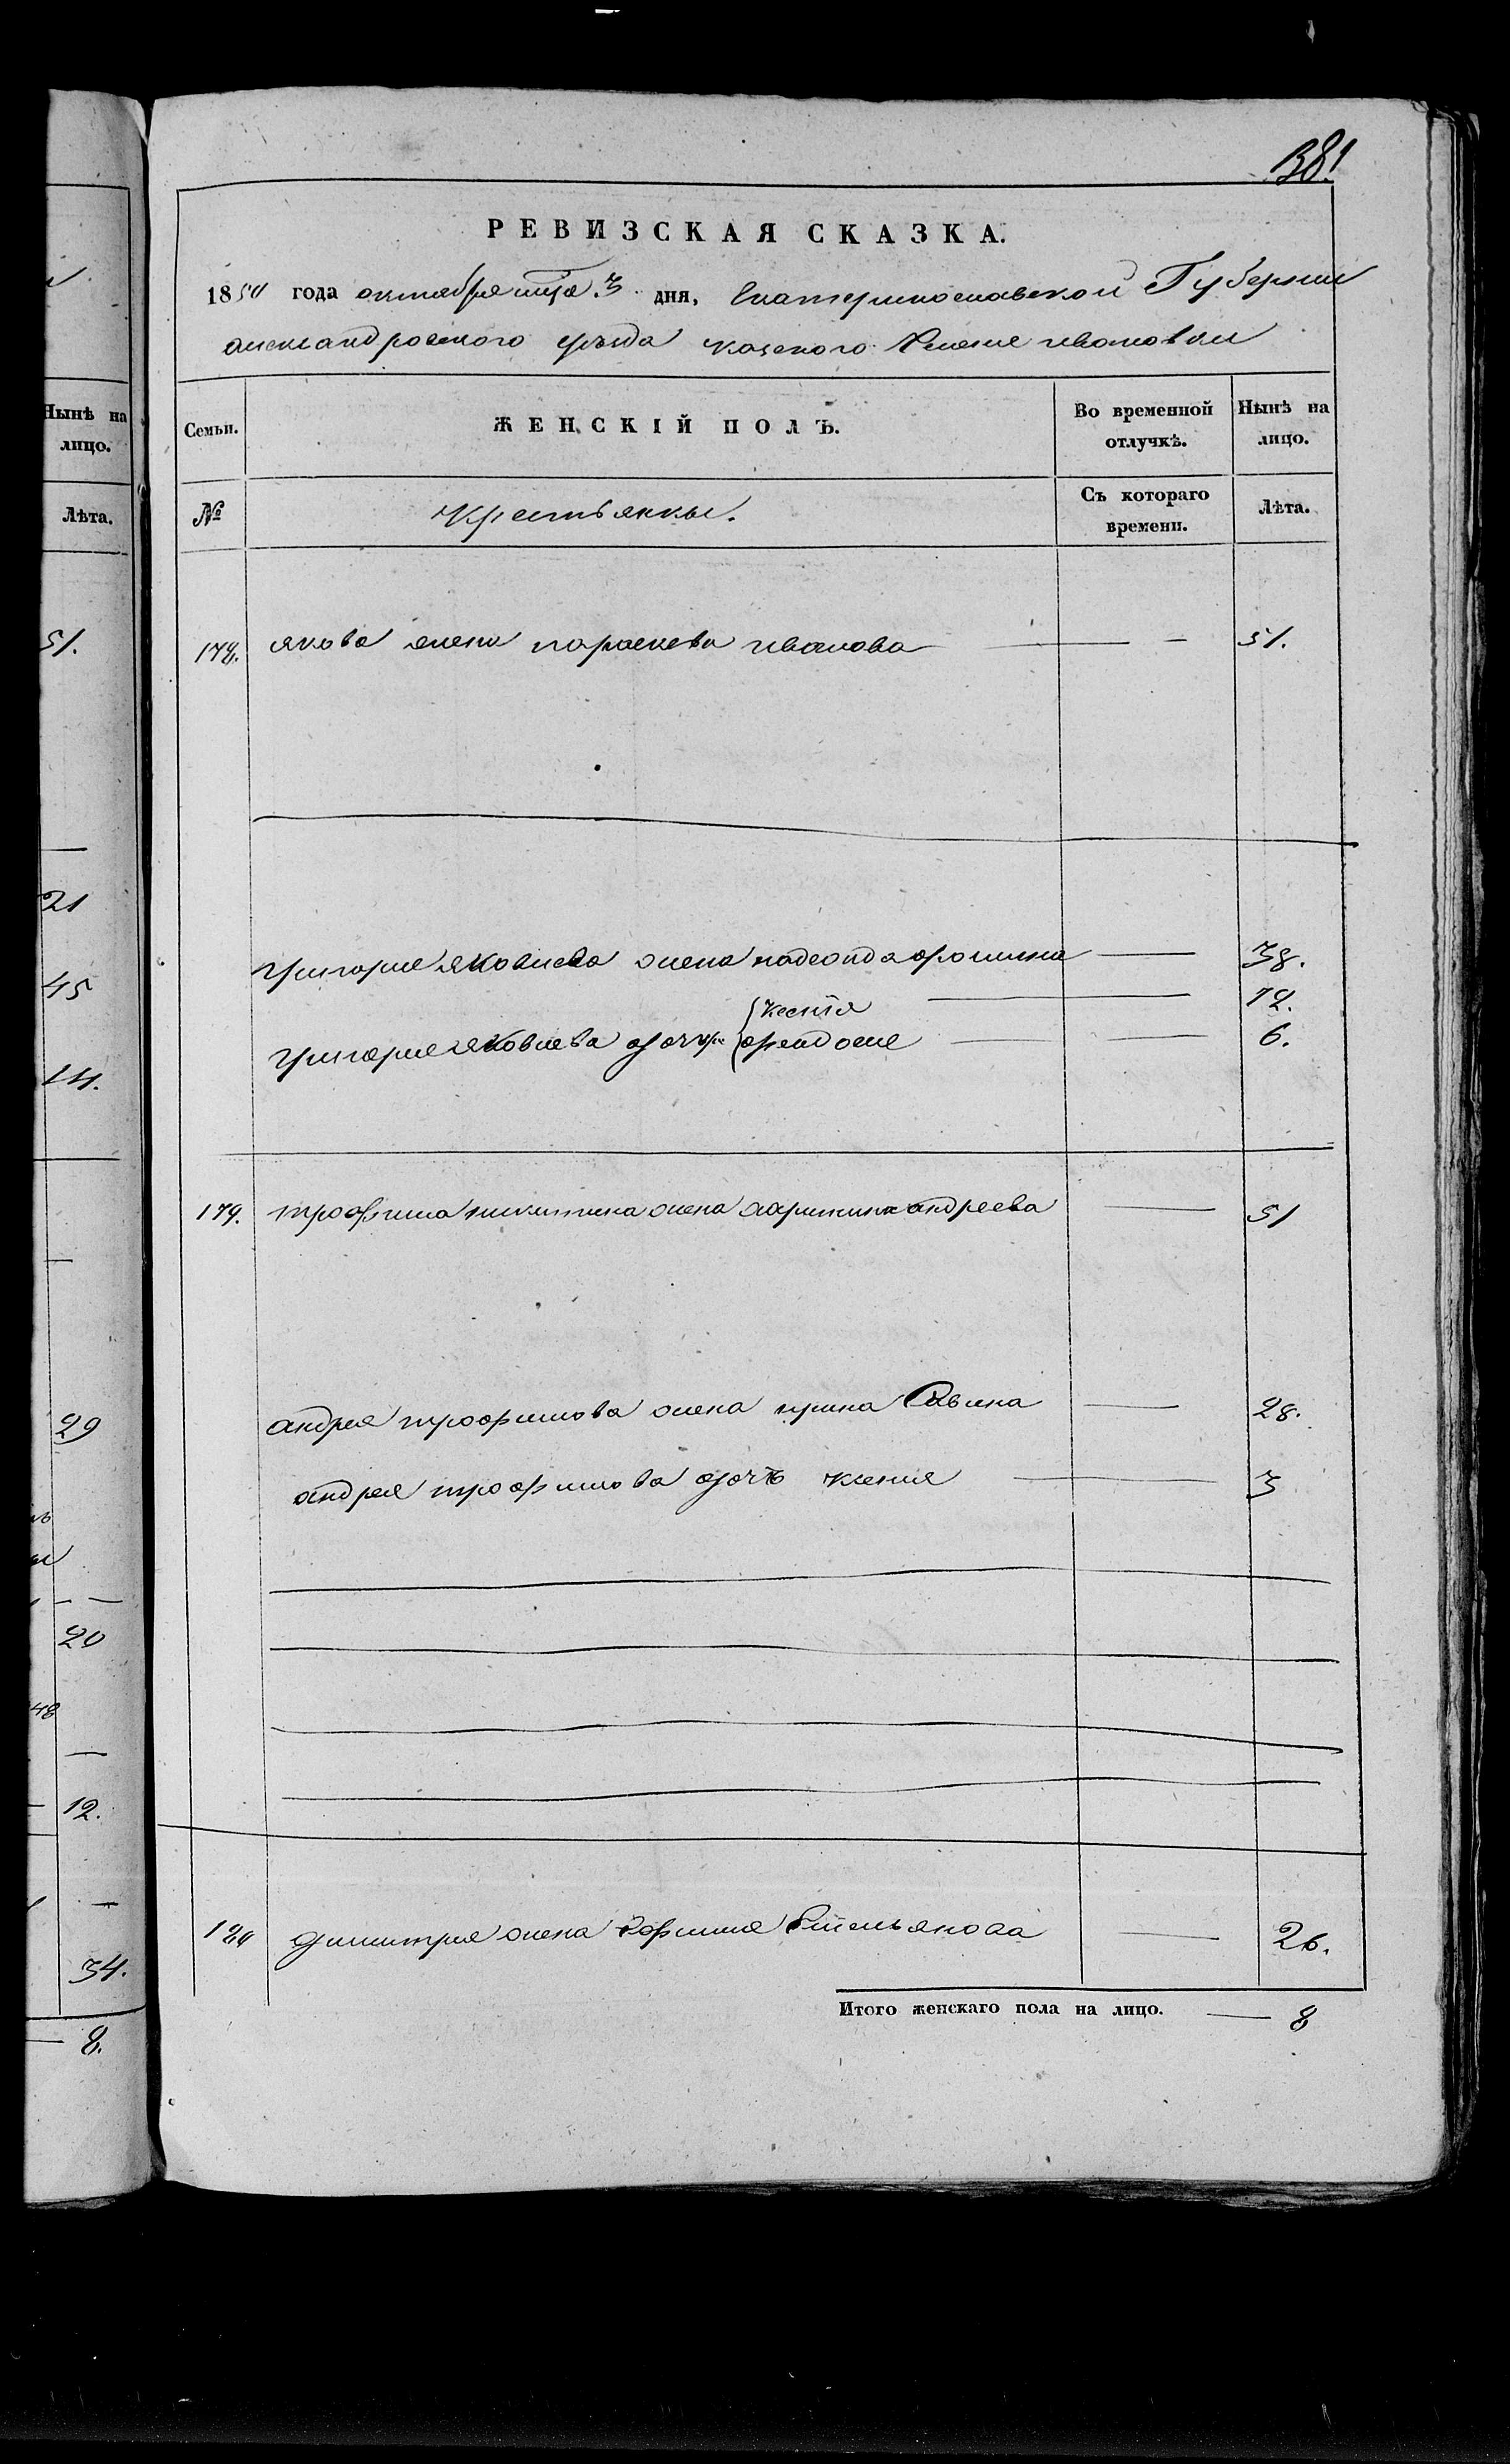 381
РЕВИЗСКАЯ СКАЗКА.
1850 года октября мца 3 дня, Екатеринославской Губернии
александровского уезда казеного Селения ивановки
Нынѣ на лицо.
Лѣта.
51.
21
45
14.
29
20
48
12.
34.
8.
Семьи. ЖЕНСКІЙ ПОЛЪ. Во временной отлучкѣ. Нынѣ на лицо.
№ Крестьянки. Съ котораго времени. Лѣта.
178. якова жена параскева иванова — — 51.
григория яковлева жена надежда — 38.
{ксения — 12.
григория яковлева дочери {феодосия — — 6.
179. трофима никитина жена андреева — 51
андрея трофимова жена ирина Савина — 28.
андрея трофимова дочь ксения — 3
180 димитрия жена Емельянова — 26.
Итого женскаго пола на лицо. — 8